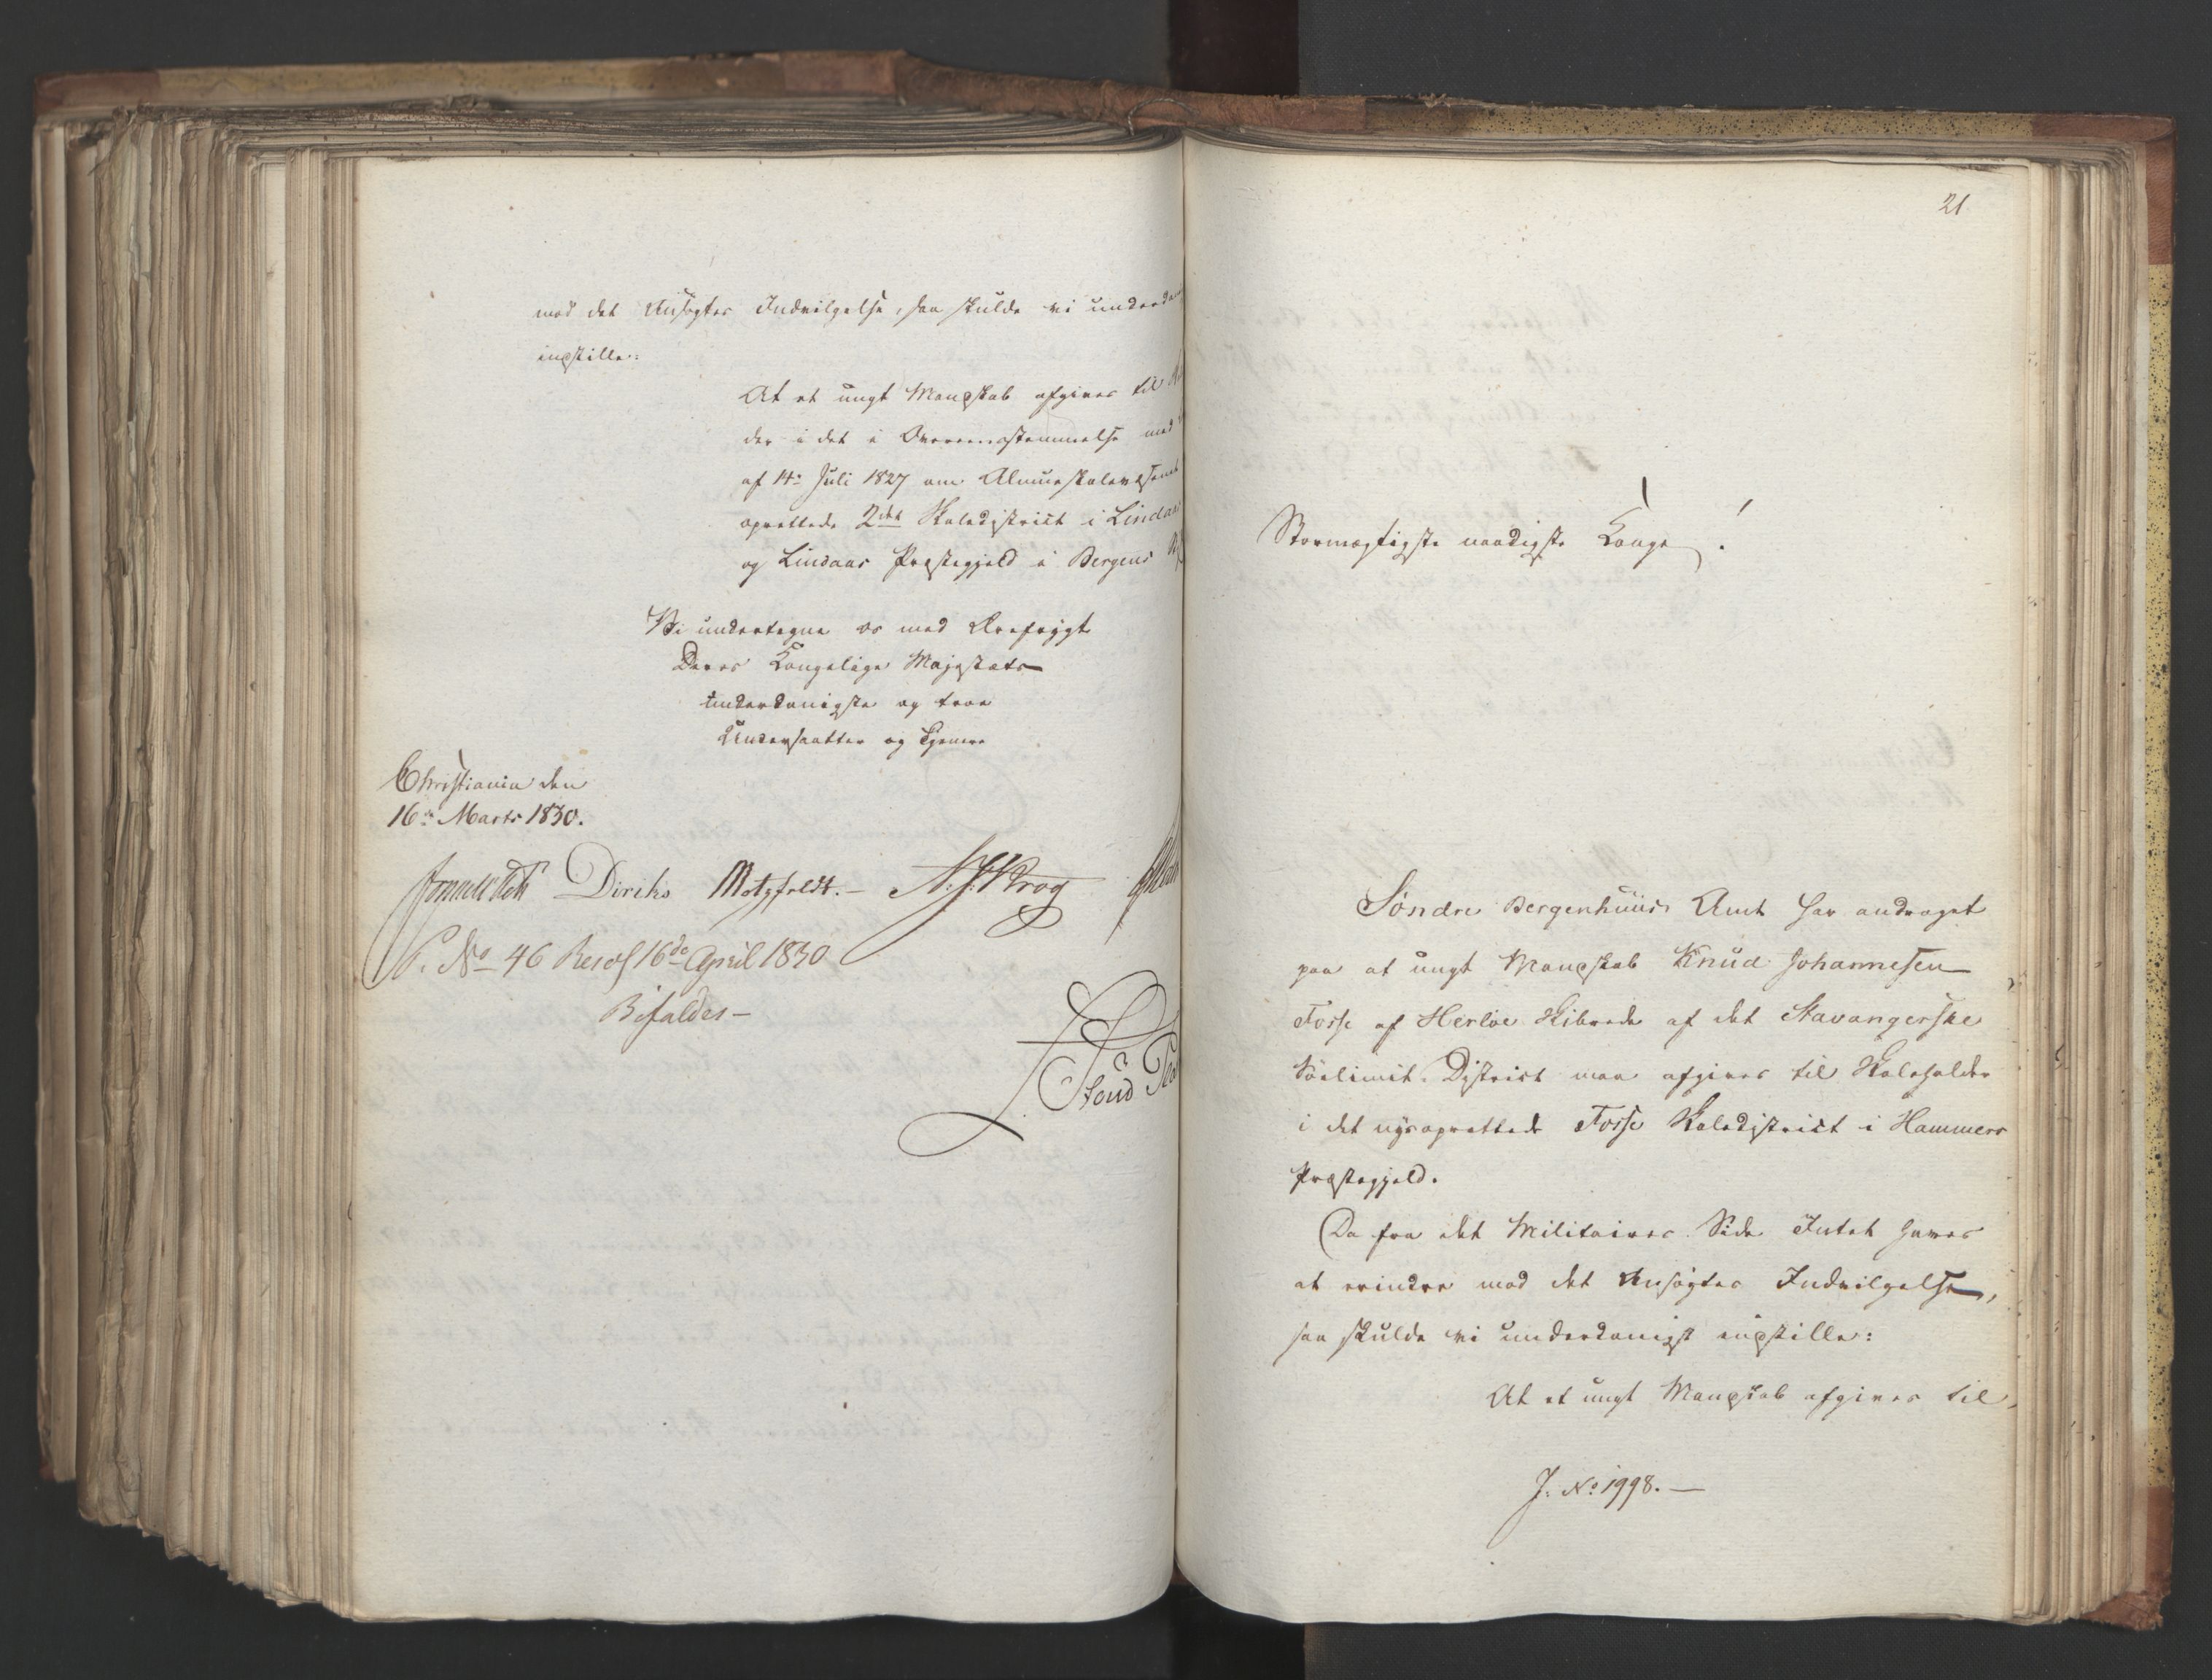 mod det Ansøgtes Indvilgelse, saa skulde vi underdan
indstille:
At et ungt Mandskab afgives til
der i det i Overeensstemmelse med
af 14de Juli 1827 om Almueskolevæsenet
oprettede 2det Skoledistrict i Lindaas
og Lindaas Præstegjeld i Bergens
Vi undertegne os med Ærefrygt
Deres Kongelige Majestæts
underdanigste og troe
Undersaatter og Tjenere
Christiania den
16de Marts 1830.
Diriks Motzfeldt. – N. J. Krog
P. No 46 Resol 16de April 1830
Bifaldes –
21
Stormægtigste naadigste Konge!
Søndre Bergenhuus Amt har andraget
paa at ungt Mandskab Knud Johannesen
Fosse af Herløe Skibrede af det Stavangerske
Søelimit. District maa afgives til Skoleholder
i det nysoprettede Fosse Skoledistrict i Hammers
Præstegjeld.
Da fra det Militaires Side Intet haves
at erindre mod det Ansøgtes Indvilgelse,
saa skulde vi underdanigst indstille:
At et ungt Mandskab afgives til
J. No 1998. —